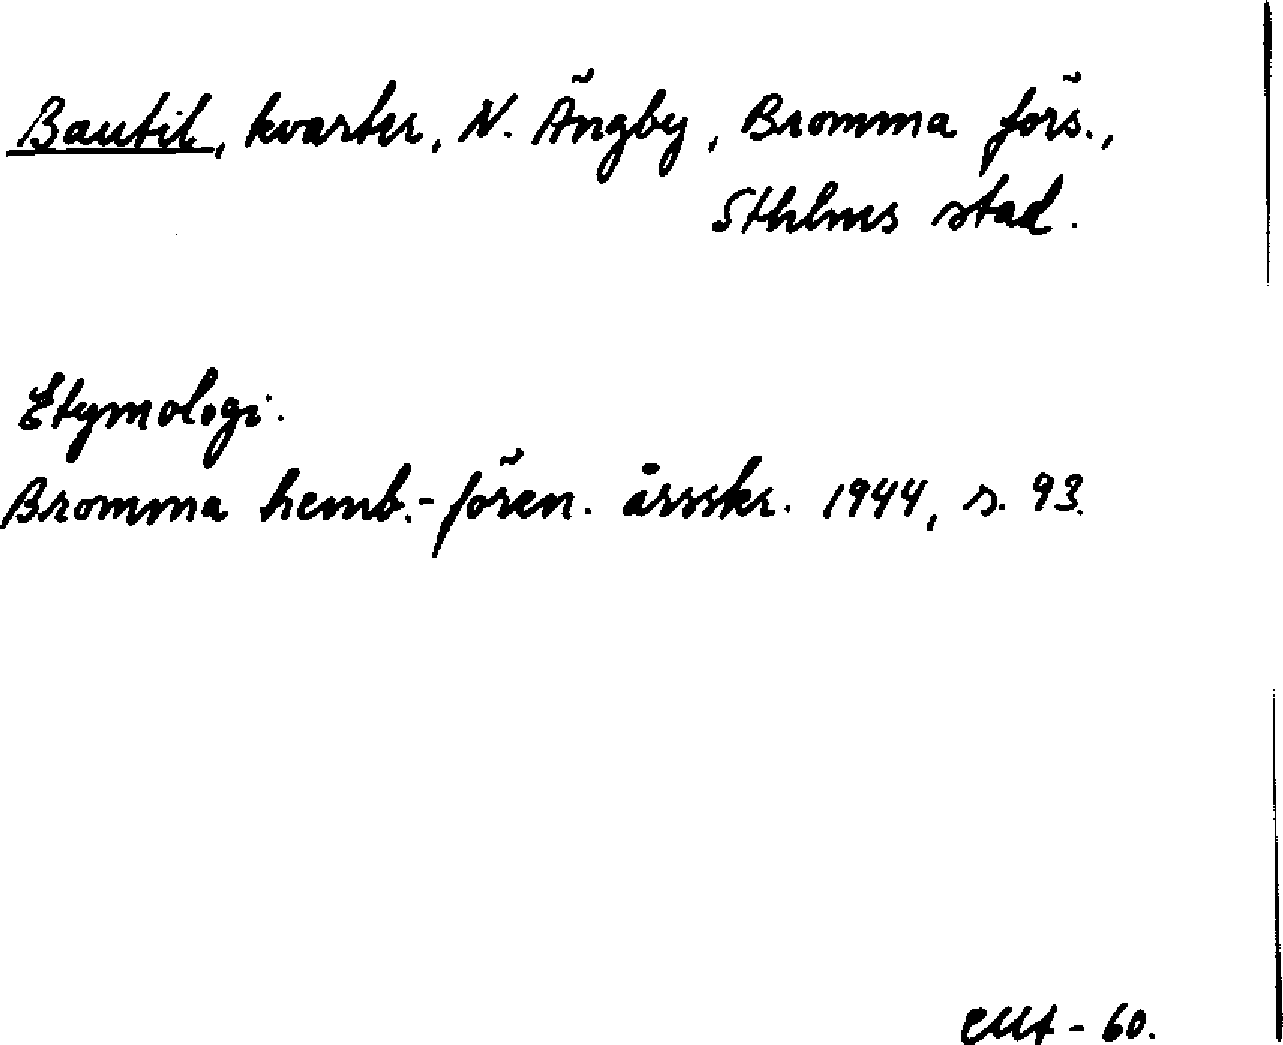 Bautil, kvarter, N. Ängby, Bromma förs.,
Sthlms stad.
Etymologi.
Bromma hemb.-fören. årsskr. 1944, s. 93.
- 60.